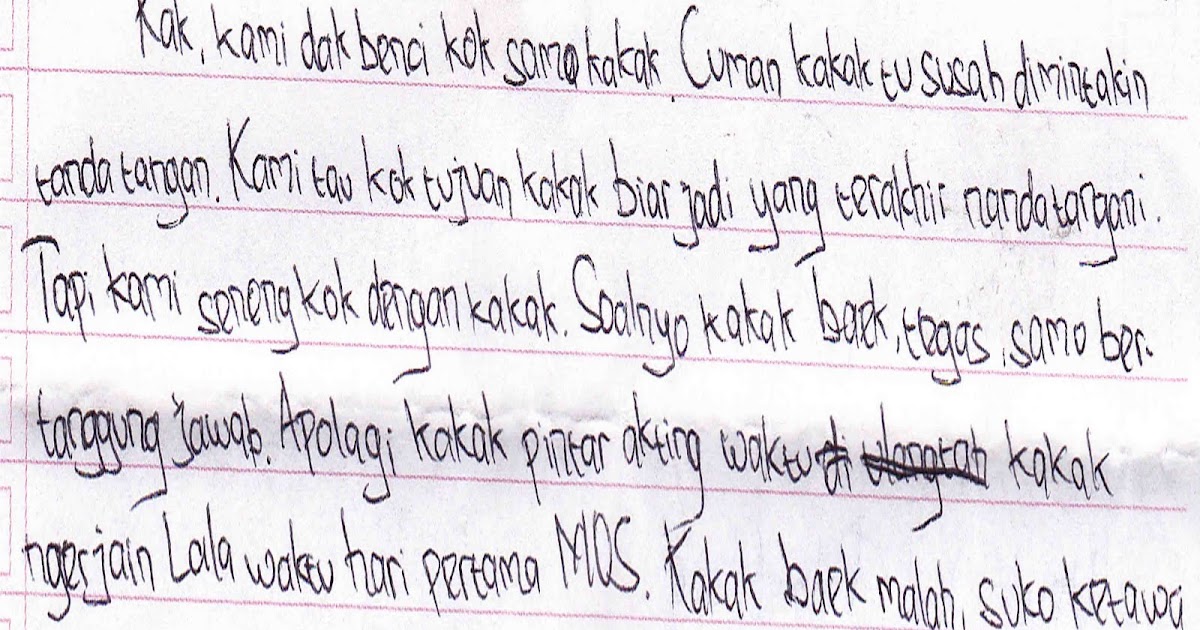 Kak, kami dak benci kok samo kakak. Cuman kakak tu susah dimintakin
tanda tangan. Kami tau kok tujuan kakak biar jadi yang terakhir nandatangani.
Tapi kami seneng kok dengan kakak. Soalnyo kakak baek, tegas, samo ber-
tanggung jawab. Apolagi kakak pintar akting waktu di ulangtah kakak
ngerjain Lala waktu hari pertama MOS. Kakak baek malah, suko ketawa